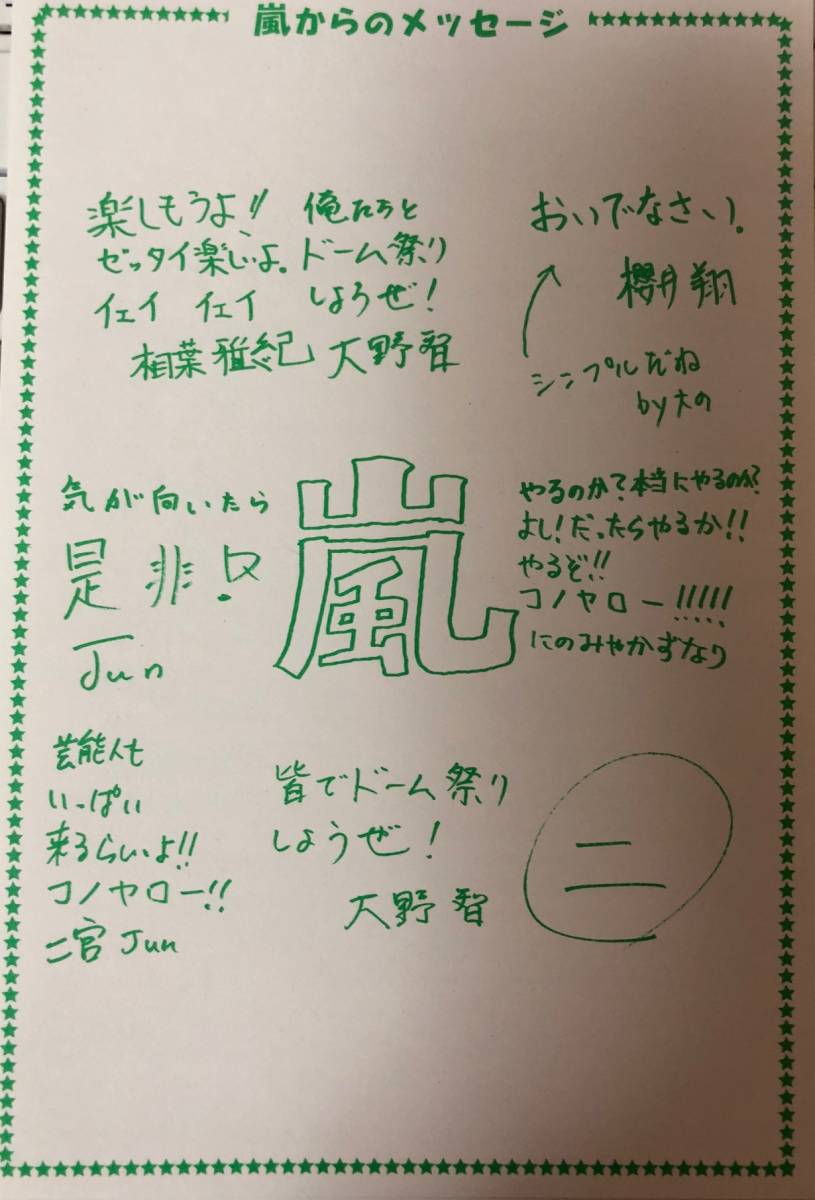 嵐からのメッセージ
楽しもうよ!!
ゼッタイ楽しいよ。
イェイ イェイ
相葉雅紀
俺たちと
ドーム祭り
しようぜ!
大野智
おいでなさい。
櫻井翔
シンプルだね
by大の
気が向いたら
是非!
Jun
嵐
やるのか?本当にやるのか?
よし!だったらやるか!!
やるぞ!!
コノヤロー!!!!!
にのみやかずなり
芸能人も
いっぱい
来るらいよ!!
コノヤロー!!
二宮 Jun
皆でドーム祭り
しようぜ!
大野智
二